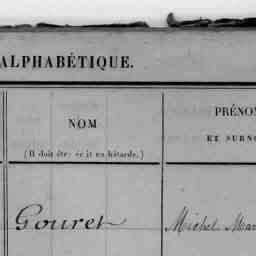 ALPHABÉTIQUE.
NOM
(Il doit être écrit en bâtarde.)
PRÉNO
ET SURNO
Gouret
Michel Mar